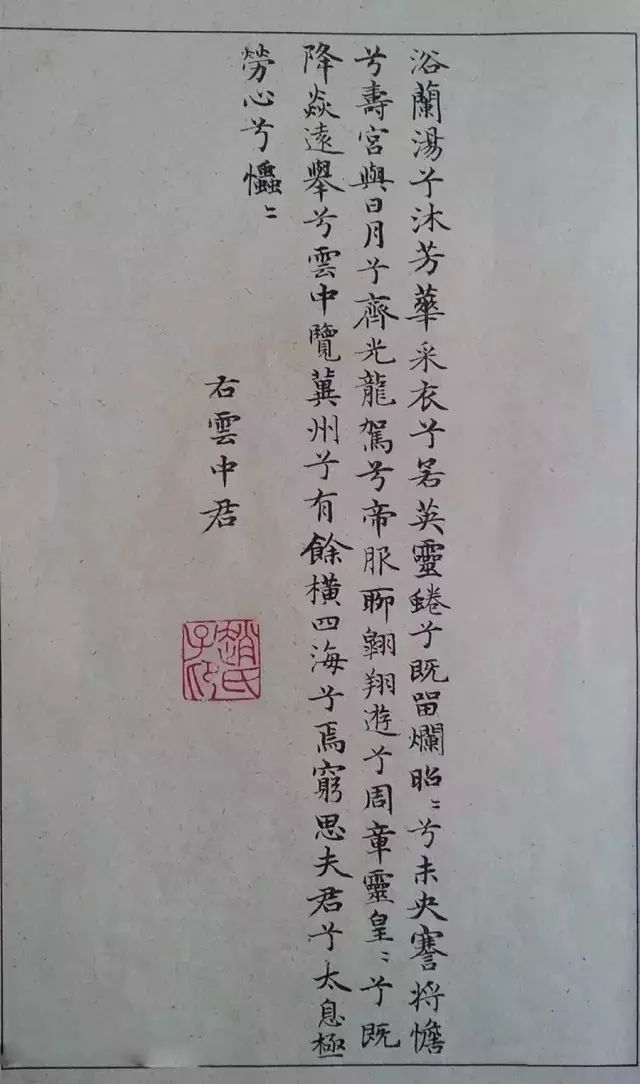 浴蘭湯兮沐芳華采衣兮若英靈蜷兮既留爛昭〻兮未央謇將憺
兮壽宮與日月兮齊光龍駕兮帝服聊翱翔遊兮周章靈皇〻兮既
降焱遠舉兮雲中覽冀州兮有餘橫四海兮焉窮思夫君兮太息極
勞心兮爞〻
右雲中君
趙氏子印